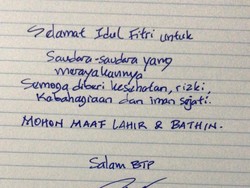 Selamat Idul Fitri untuk
Saudara-saudara yang
merayakannya
Semoga diberi kesehatan, rizki,
Kebahagiaan dan iman sejati.
MOHON MAAF LAHIR & BATHIN.
Salam BTP